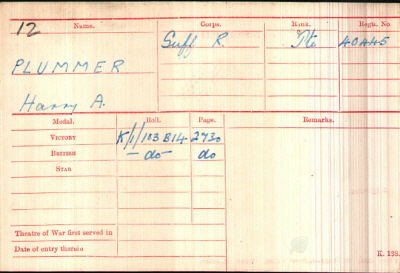 12
Name. Corps. Rank. Regtl. No
PLUMMER Suff R. Pte 40445
Harry A.
Medal. Roll. Page. Remarks.
VICTORY K/1/103 B14 2730
BRITISH – do – do
STAR
Theatre of War first served in
Date of entry therein
K. 138